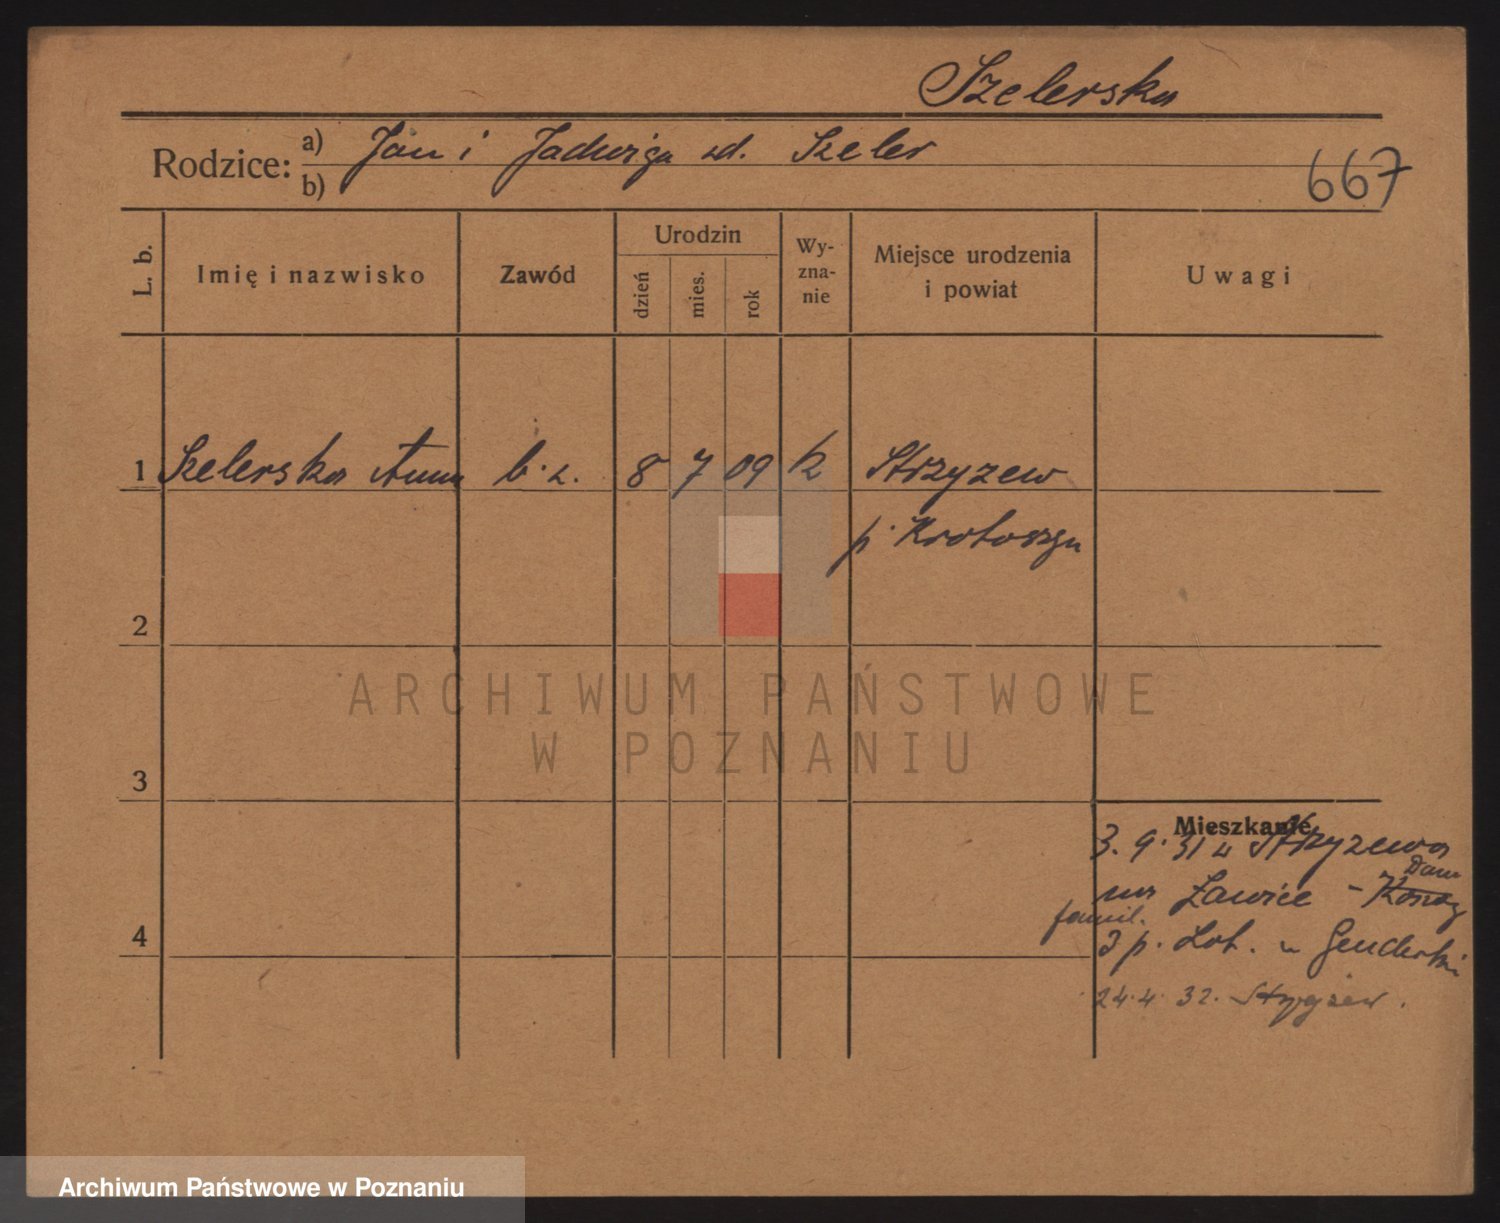 Szelerska
Rodzice: a) Jan i Jadwiga zd. Szeler
b)
667
L. b.
Imię i nazwisko
Zawód
Urodzin
dzień
mies.
rok
Wy-
zna-
nie
Miejsce urodzenia
i powiat
Uwagi
1 Szelerska Anna b. z. 8 7 09 k Strzyzew
p. Krotoszyn
2
ARCHIWUM PAŃSTWOWE
W POZNANIU
3
Mieszkanie
3. 9. 31 z Strzyzewa
Dom
na Ławice -
famil.
4
3 p. Lot. u
24. 4. 32. Strzyżew.
Archiwum Państwowe w Poznaniu